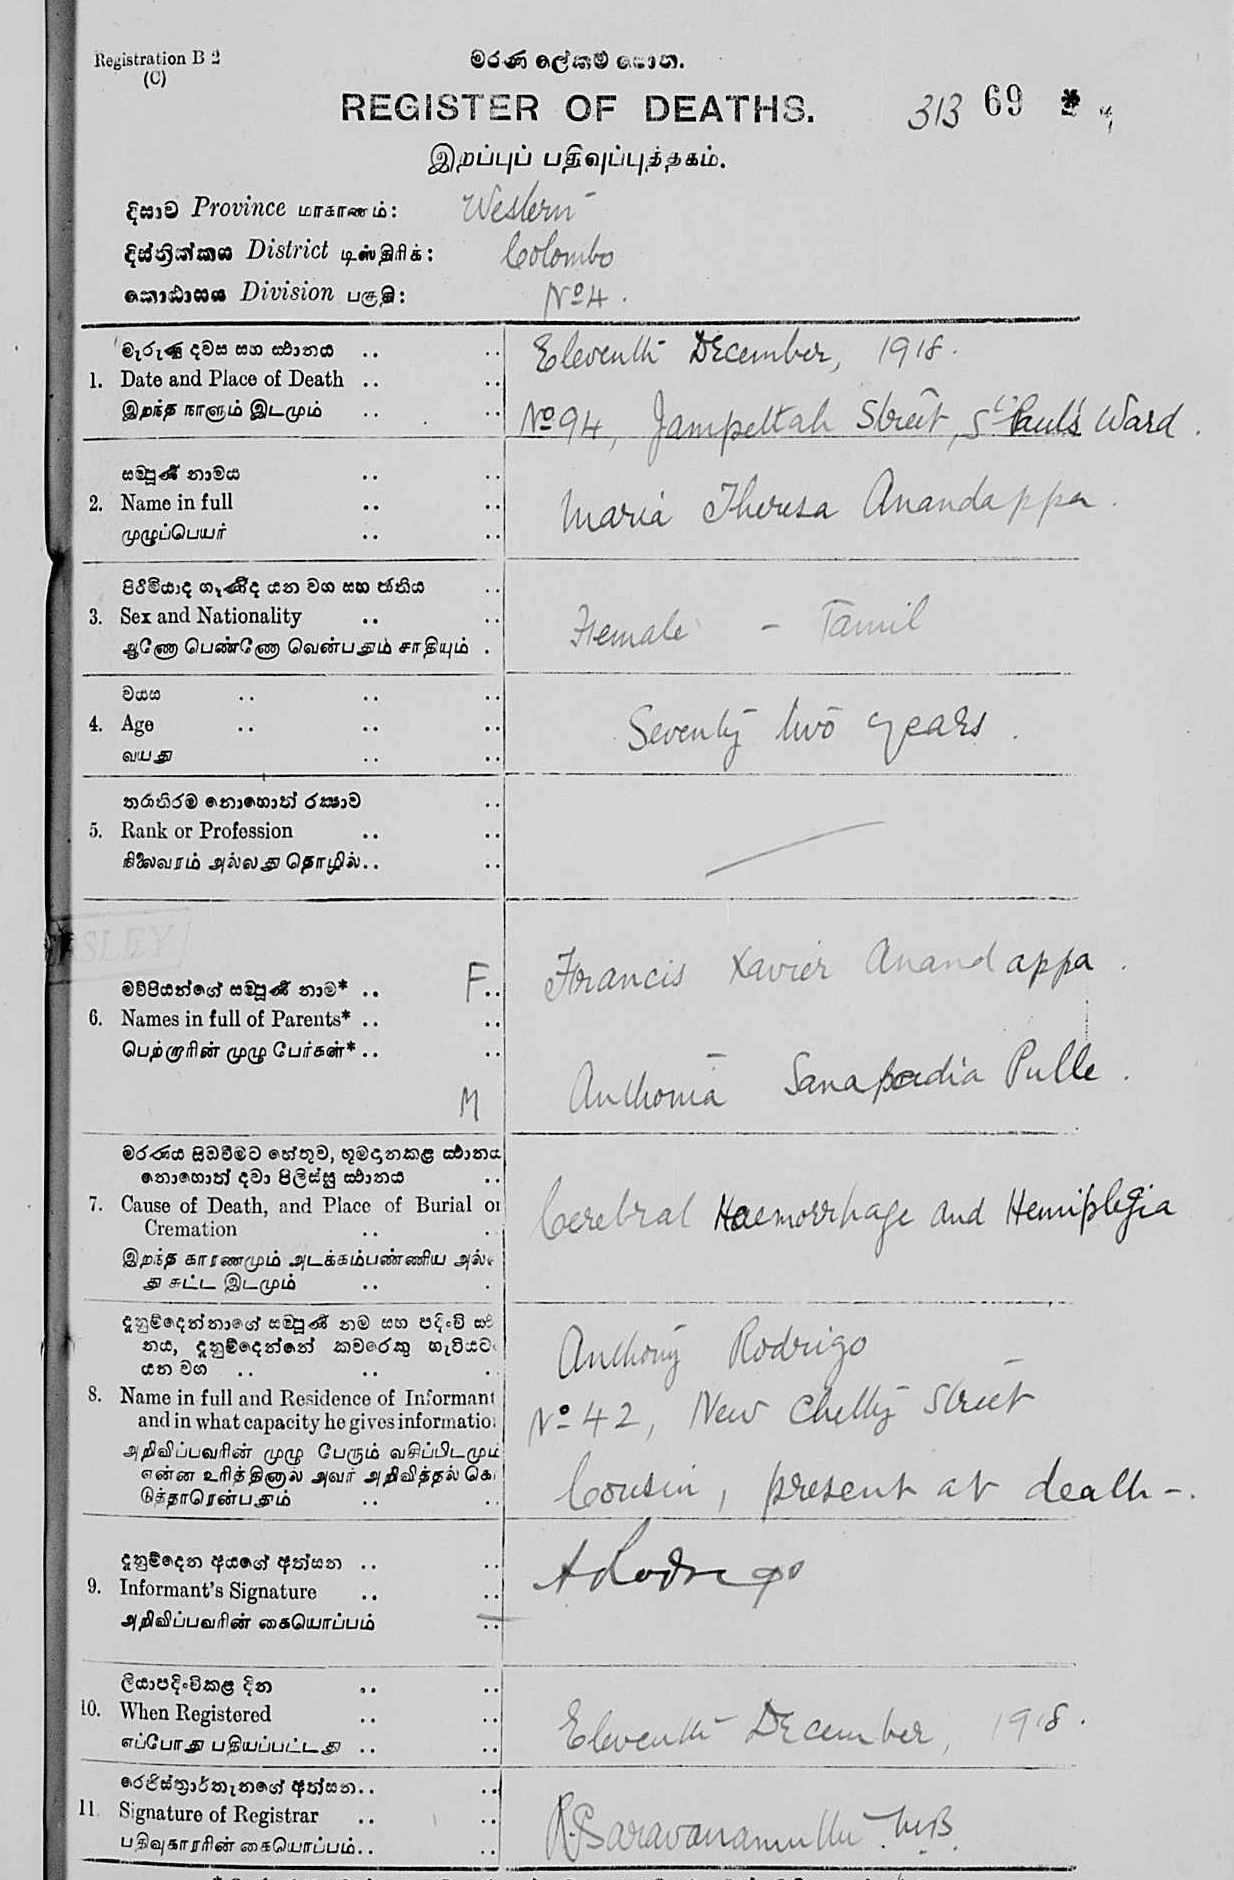 Registration B 2
(C)
මරණ ලේකම් පොත.
REGISTER OF DEATHS.
313 69
இறப்புப் பதிவுப்புத்தகம்.
දිසාව Province மாகாணம்: Western
දිස්ත්‍රික්කය District டிஸ்திரிக்: Colombo
කොට්ඨාසය Division பகுதி: No 4.
මැරුණු දවස සහ ස්ථානය .. ..
1. Date and Place of Death .. ..
இறந்த நாளும் இடமும் .. ..
Eleventh December, 1918.
No 94, Jampettah Street, St Paul's Ward.
සම්පූර්ණ නාමය .. ..
2. Name in full .. ..
முழுப்பெயர் .. ..
Maria Theresa Anandappa.
පිරිමියාද ගැණිද යන වග සහ ජාතිය ..
3. Sex and Nationality .. ..
ஆணோ பெண்ணோ வென்பதும் சாதியும் .
Female - Tamil
වයස .. .. ..
4. Age .. .. ..
வயது .. ..
Seventy two years.
තරාතිරම නොහොත් රක්ෂාව ..
5. Rank or Profession .. ..
நிலைவரம் அல்லது தொழில்.. ..
මව්පියන්ගේ සම්පූර්ණ නාම* ..
6. Names in full of Parents* .. ..
பெற்றாரின் முழு பேர்கள்* .. ..
F Francis Xavier Anandappa.
M Anthonia Sanapadia Pulle.
මරණය සිඩවීමට හේතුව, භූමදානකළ ස්ථානය
නොහොත් දවා පිලිස්සු ස්ථානය ..
7. Cause of Death, and Place of Burial or
Cremation .. .
இறந்த காரணமும் அடக்கம்பண்ணிய அல்
து சுட்ட இடமும் .. .
Cerebral Haemorrhage and Hemiplegia
දැනුම්දෙන්නාගේ සම්පූර්ණ නම සහ පදිංචි
නය, දැනුම්දෙන්නේ කවරෙකු හැටියට
යන වග .. .. .
8. Name in full and Residence of Informant
and in what capacity he gives information
அறிவிப்பவரின் முழு பேரும் வசிப்பிடமும்
என்ன உரித்தினால் அவர் அறிவித்தல் கொ
டுத்தாரென்பதும் .. ..
Anthony Rodrigo
No 42, New Chetty Street
Cousin, present at death -.
දැනුම්දෙන අයගේ අත්සන .. ..
9. Informant's Signature .. ..
அறிவிப்பவரின் கையொப்பம் ..
A Rodrigo
ලියාපදිංචිකළ දින .. ..
10. When Registered .. ..
எப்போது பதியப்பட்டது .. ..
Eleventh December, 1918.
රෙජිස්ත්‍රාර්තැනගේ අත්සන.. ..
11. Signature of Registrar .. ..
பதிவுகாரரின் கையொப்பம்.. ..
R. Saravanamuttu M.B.